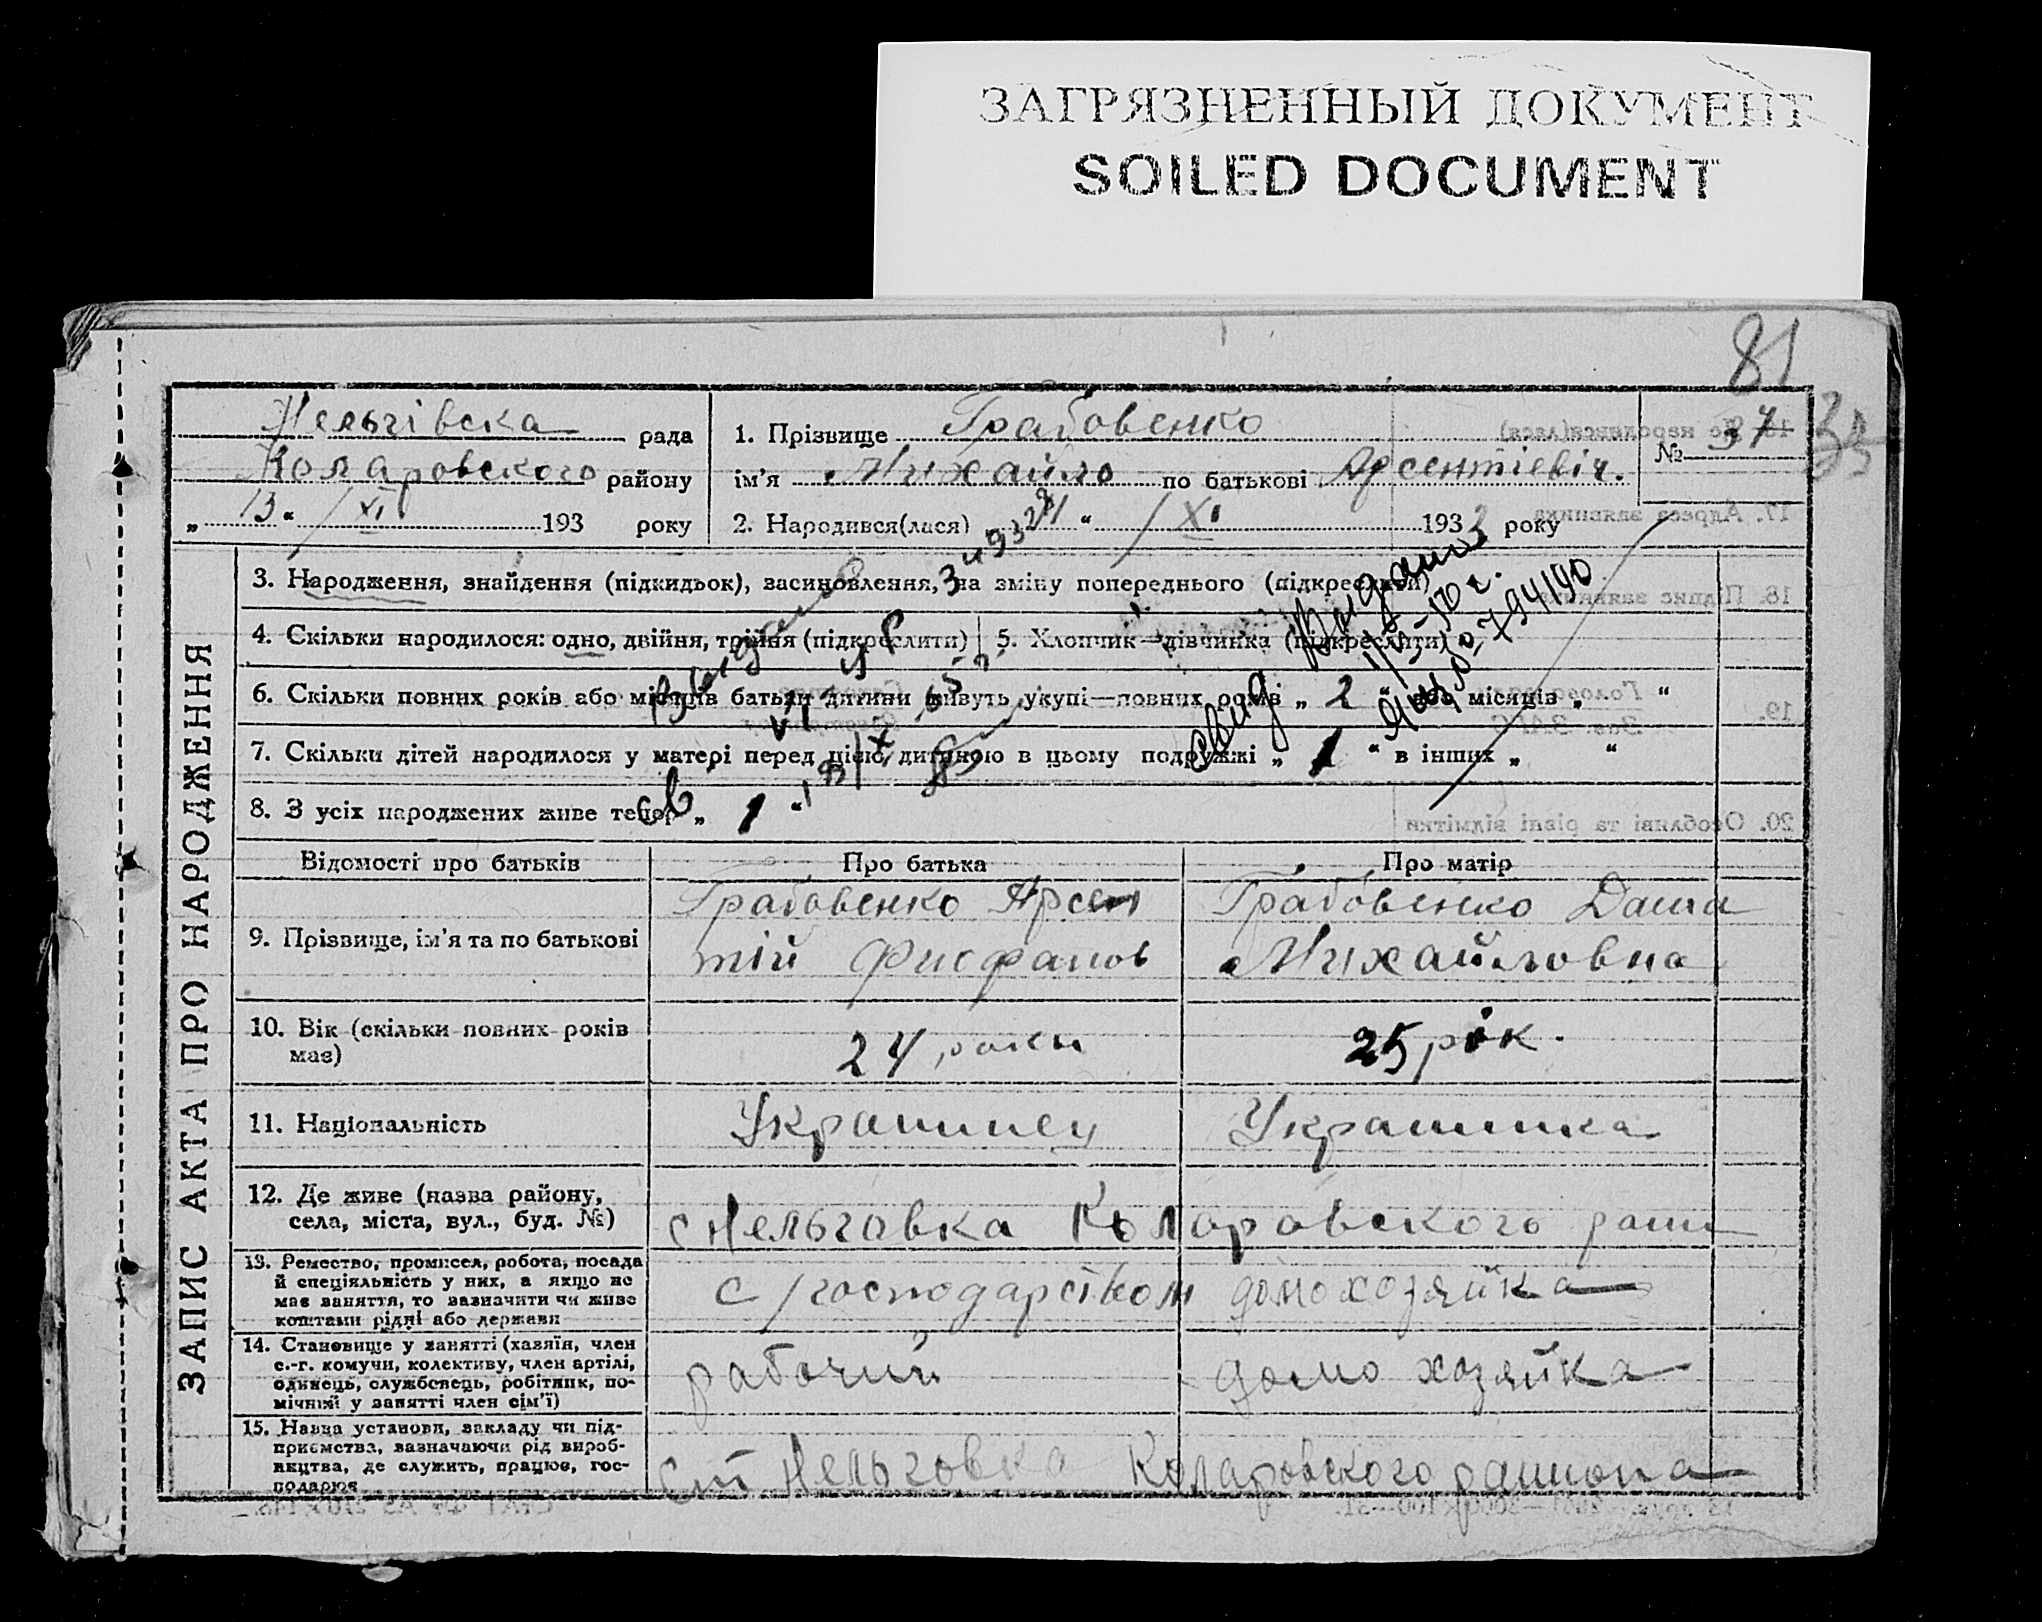 ЗАГРЯЗНЕННЫЙ ДОКУМЕНТ
SOILED DOCUMENT
81
Нельгівска рада
Коларовского району
„ 13 “ XI 193 року
1. Прізвище Грабовенко
ім’я Михайло по батькові Арсентіевіч.
2. Народився(лася) “ XI 1933 року
№ 37
ЗАПИС АКТА ПРО НАРОДЖЕННЯ
3. Народження, знайдення (підкидьок), засиновлення, на зміну попереднього (підкреслити)
4. Скільки народилося: одно, двійня, трійня (підкреслити)
5. Хлопчик—дівчинка (підкреслити)
6. Скільки повних років або місяців батьки дитини живуть укупі—повних років „ 2 “ або місяців „ “
7. Скільки дітей народилося у матері перед цією дитиною в цьому подружжі „ 1 “ в інших „ “
8. З усіх народжених живе тепер „ 1 “
Выдано
свид Выдано
794190
Відомості про батьків
Про батька
Про матір
9. Прізвище, ім’я та по батькові
Грабовенко Арсен
тій Фиофанов
Грабовенко Даша
Михайловна
10. Вік (скільки повних років
має)
24 роки
25 рік.
11. Національність
Украинец
Украинка
12. Де живе (назва району,
села, міста, вул., буд. №)
с Нельговка Коларовского раии
13. Ремество, промисел, робота, посада
й спеціяльність у них, а якщо не
має заняття, то зазначити чи живе
коштами рідні або держави
с/господарством
домохозяйка
14. Становище у занятті (хазяїн, член
с.-г. комуни, колективу, член артілі,
одинець, службовець, робітник, по-
мічний у занятті член сім’ї)
рабочий
домо хозяйка
15. Назва установи, закладу чи під-
приємства, зазначаючи рід вироб-
ництва, де служить, працює, гос-
подарює
Ст Нельговка Коларовского раииона